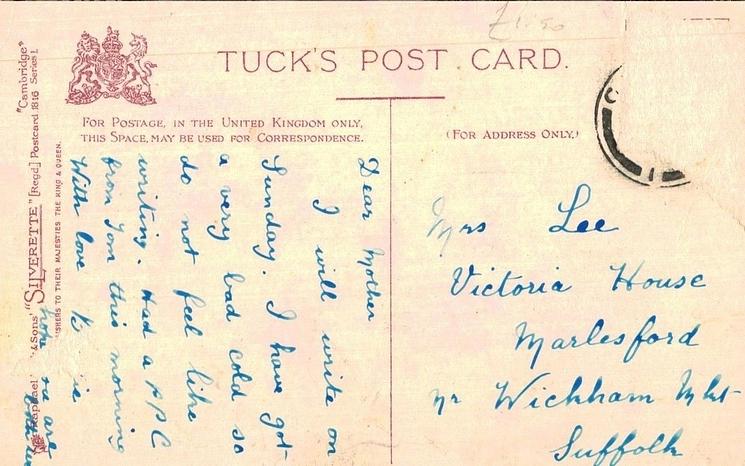 £1.50
TUCK'S POST CARD.
FOR POSTAGE, IN THE UNITED KINGDOM ONLY,
THIS SPACE, MAY BE USED FOR CORRESPONDENCE.
(FOR ADDRESS ONLY.)
Dear Mother
I will write on
Sunday. I have got
a very bad cold so
do not feel like
writing. Had a PPC
from Tom this morning
With love
hope
are
Mrs Lee
Victoria House
Marlesford
nr Wickham Mkt
Suffolk
"Cambridge"
"SILVERETTE" [Regd] Postcard 1816 Series I.
Raphael & Sons'
TO THEIR MAJESTIES THE KING & QUEEN.